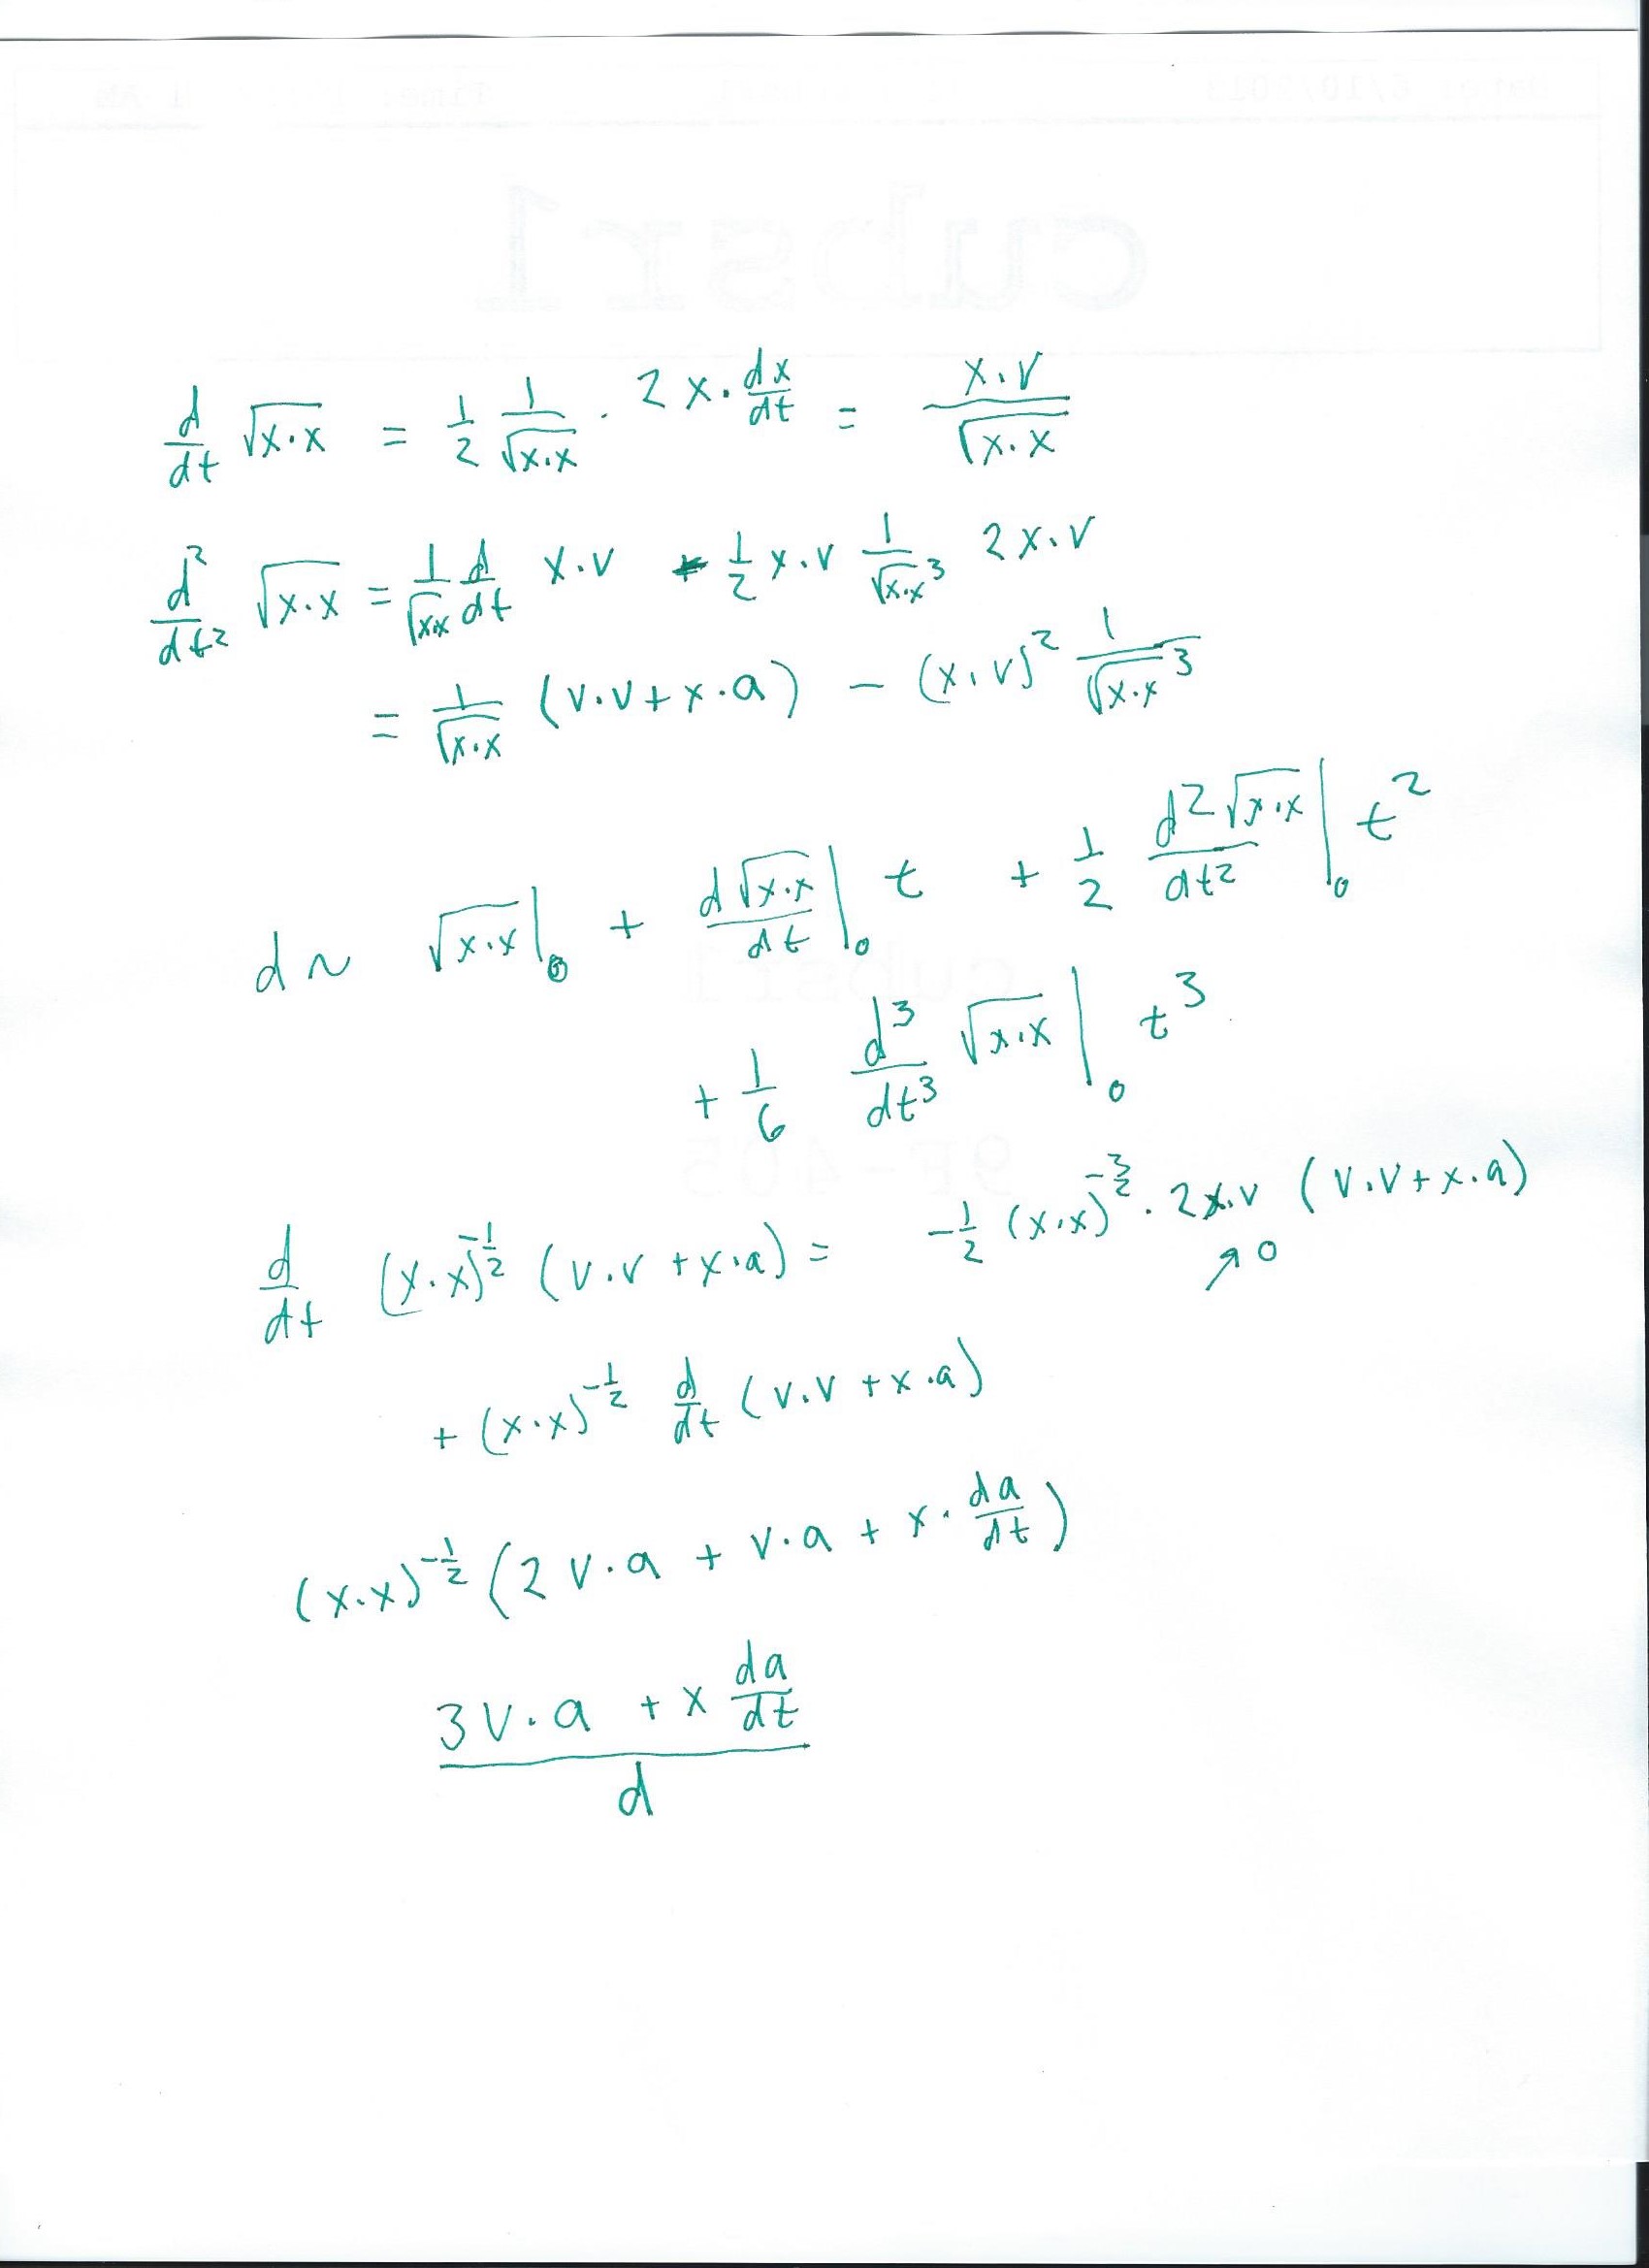 d/dt √(x·x) = 1/2 1/√(x·x) · 2x·dx/dt = x·v/√(x·x)
d²/dt² √(x·x) = 1/√(x·x) d/dt x·v - 1/2 x·v 1/√(x·x)³ 2x·v
= 1/√(x·x) (v·v + x·a) − (x·v)² 1/√(x·x)³
d ~ √(x·x)|₀ + d√(x·x)/dt|₀ t + 1/2 d²√(x·x)/dt²|₀ t²
+ 1/6 d³/dt³ √(x·x)|₀ t³
d/dt (x·x)^(-1/2) (v·v + x·a) = -1/2 (x·x)^(-3/2) · 2x·v (v·v + x·a)
↗0
+ (x·x)^(-1/2) d/dt (v·v + x·a)
(x·x)^(-1/2) (2v·a + v·a + x·da/dt)
3v·a + x da/dt
d